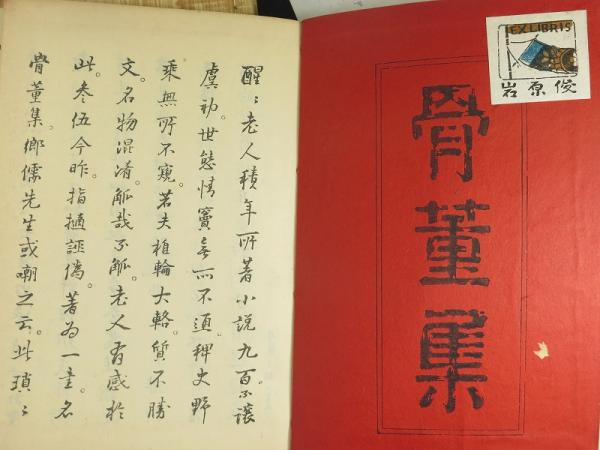 EXLIBRIS
岩原俊
骨董集
醒〻老人積年所著小説九百不讓
虞初世態情竇無所不湏。稗史野
乘無所不窺。若夫椎輪大輅。質不勝
文。名物混淆。觚哉不觚。老人有感於
此。叅伍今昨。指擿誣偽。著為一書。名
骨董集。鄉儒先生或嘲之云。此瑣〻